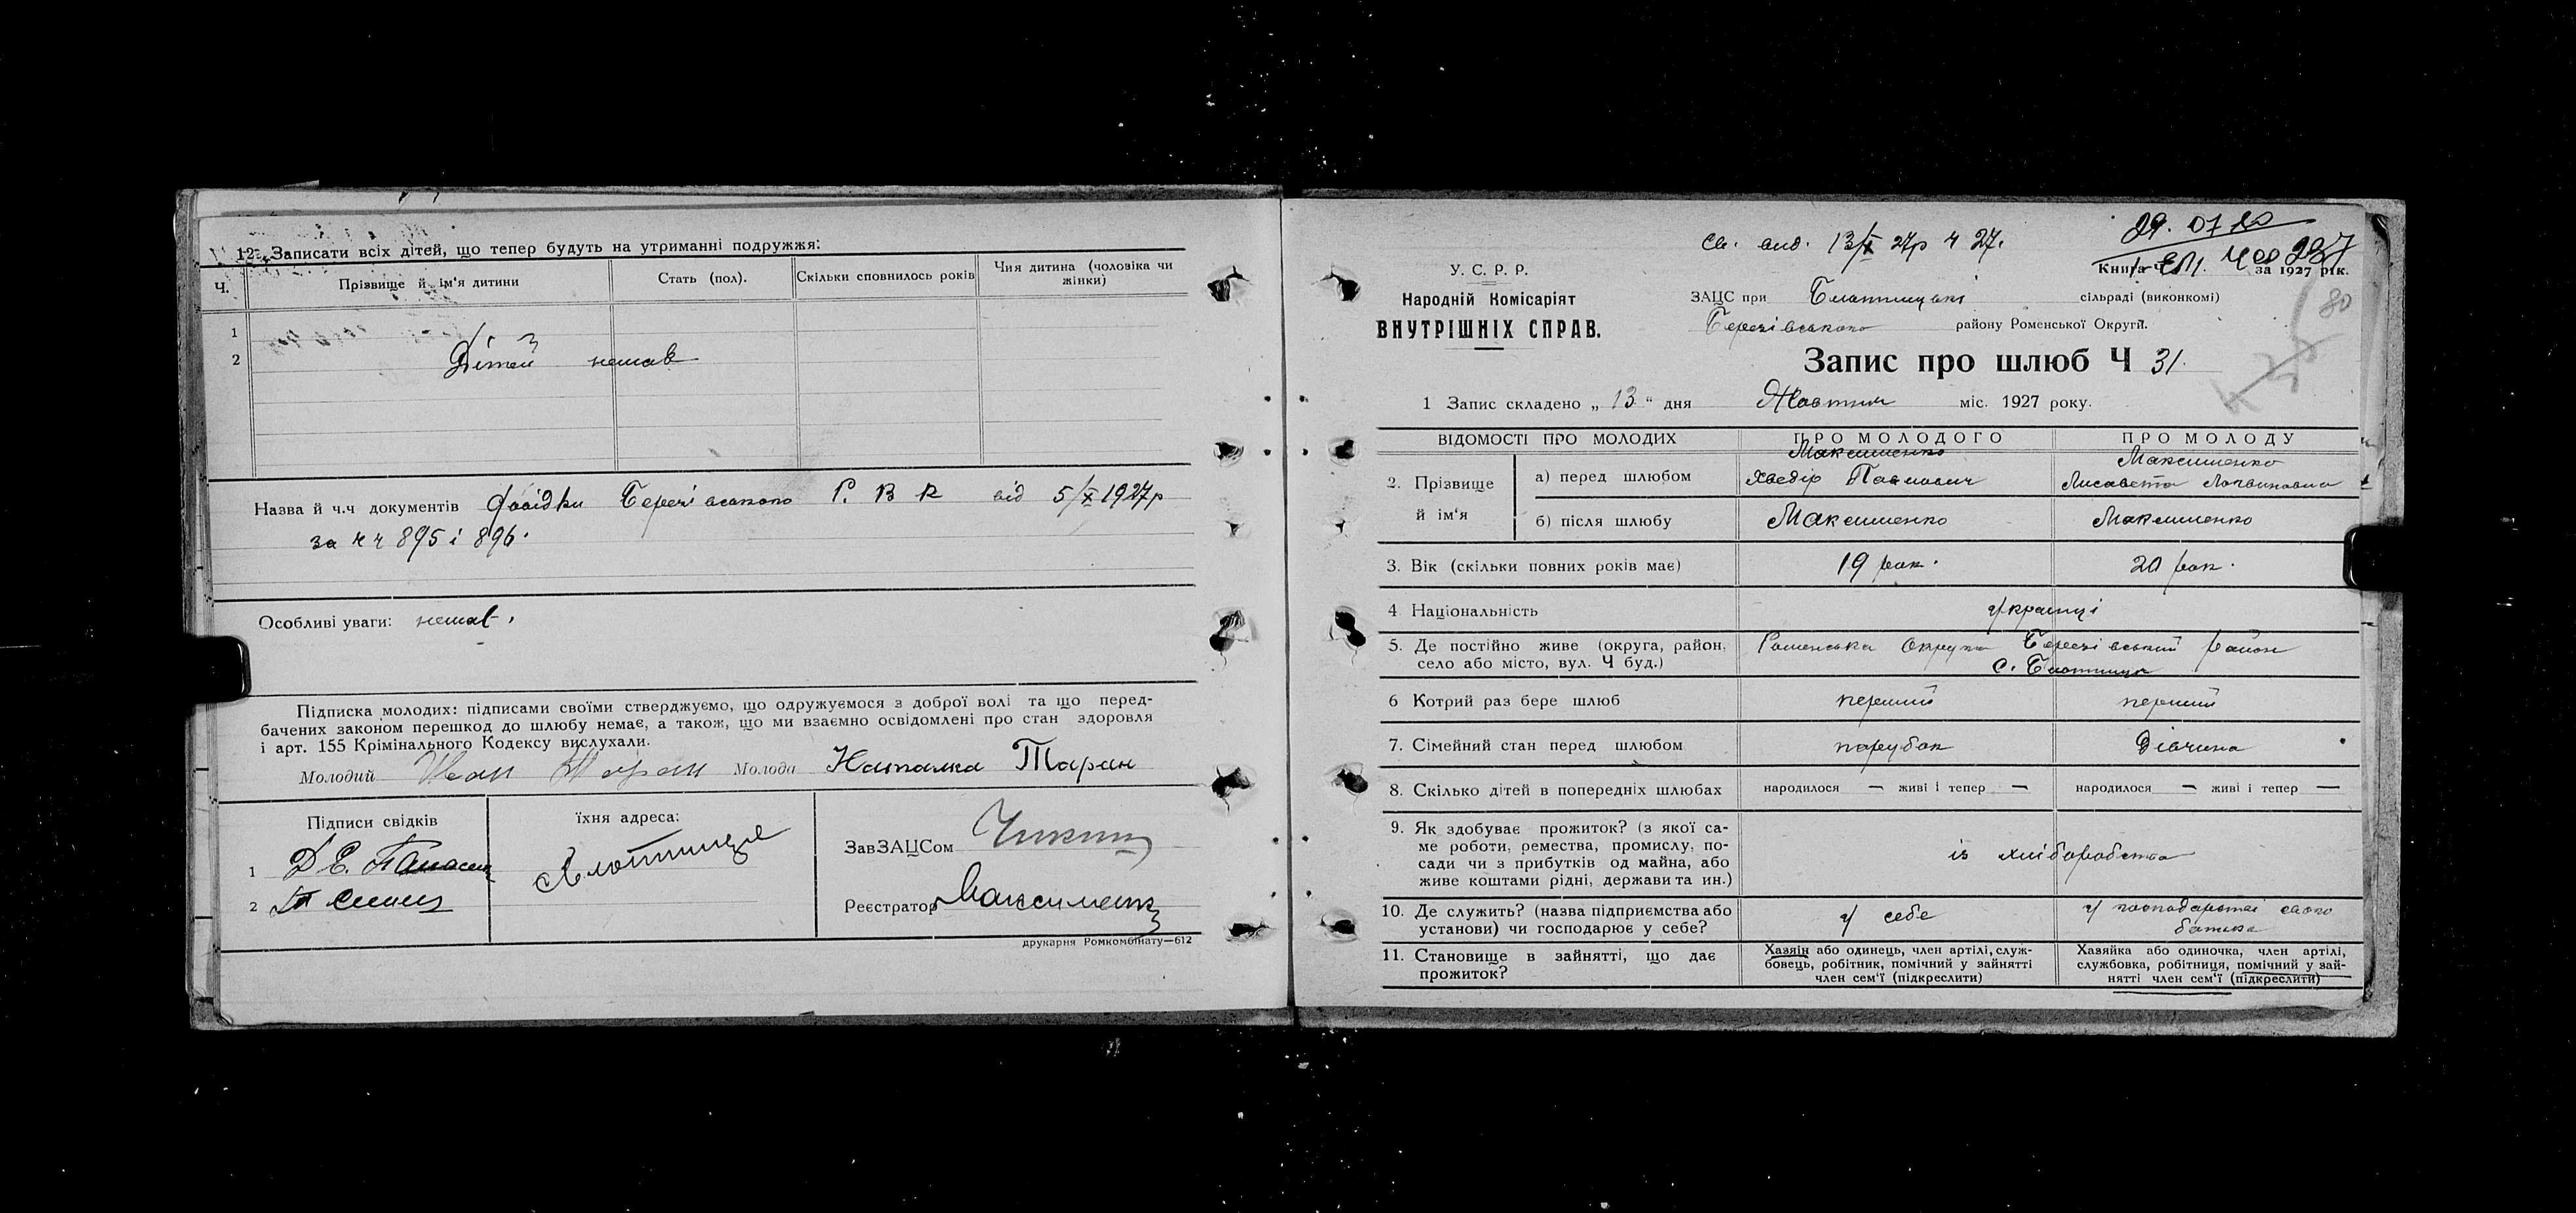 12. Записати всіх дітей, що тепер будуть на утриманні подружжя:
Ч. Прізвище й ім'я дитини Стать (пол). Скільки сповнилось років Чия дитина (чоловіка чи жінки)
1
2 Дітей немає
Назва й ч.ч документів Довідки Березівського Р. В К від 5/X 1927р
за чч 895 і 896.
Особливі уваги: немає.
Підписка молодих: підписами своїми стверджуємо, що одружуємося з доброї волі та що перед-
бачених законом перешкод до шлюбу немає, а також, що ми взаємно освідомлені про стан здоровля
і арт. 155 Крімінального Кодексу вислухали.
Молодий Иван Таран Молода Наталка Таран
Підписи свідків їхня адреса:
1 Д Е.
2
ЗавЗАЦСом
Реєстратор Максименко
друкарня Ромкомбінату—612
Св. вид. 13/X 27р ч 27.
29. 07
У. С. Р. Р.
Народній Комісаріят
ВНУТРІШНІХ СПРАВ.
Книга ч. за 1927 рік.
80
ЗАЦС при сільраді (виконкомі)
Березівського району Роменської Округи.
Запис про шлюб Ч 31.
1 Запис складено „ 13 “ дня Жовтня міс. 1927 року.
ВІДОМОСТІ ПРО МОЛОДИХ ПРО МОЛОДОГО ПРО МОЛОДУ
2. Прізвище й ім'я
а) перед шлюбом Максименко Хведір Павлович Максименко Лисавета Логвиновна
б) після шлюбу Максименко Максименко
3. Вік (скільки повних років має) 19 рок. 20 рок.
4 Національність Українці
5. Де постійно живе (округа, район, Роменська округа Березівський район
село або місто, вул. Ч буд.) с. Слотниця
6 Котрий раз бере шлюб перший перший
7. Сімейний стан перед шлюбом парубок дівчина
8. Скілько дітей в попередніх шлюбах народилося — живі і тепер — народилося — живі і тепер —
9. Як здобуває прожиток? (з якої са-
ме роботи, ремества, промислу, по-
сади чи з прибутків од майна, або
живе коштами рідні, держави та ин.)
із хліборобства
10. Де служить? (назва підприємства або
установи) чи господарює у себе?
у себе
у господарстві свого
батька
11. Становище в зайнятті, що дає
прожиток?
Хазяїн або одинець, член артілі, служ-
бовець, робітник, помічний у зайнятті
член сем'ї (підкреслити)
Хазяйка або одиночка, член артілі,
службовка, робітниця, помічний у зай-
нятті член сем'ї (підкреслити)